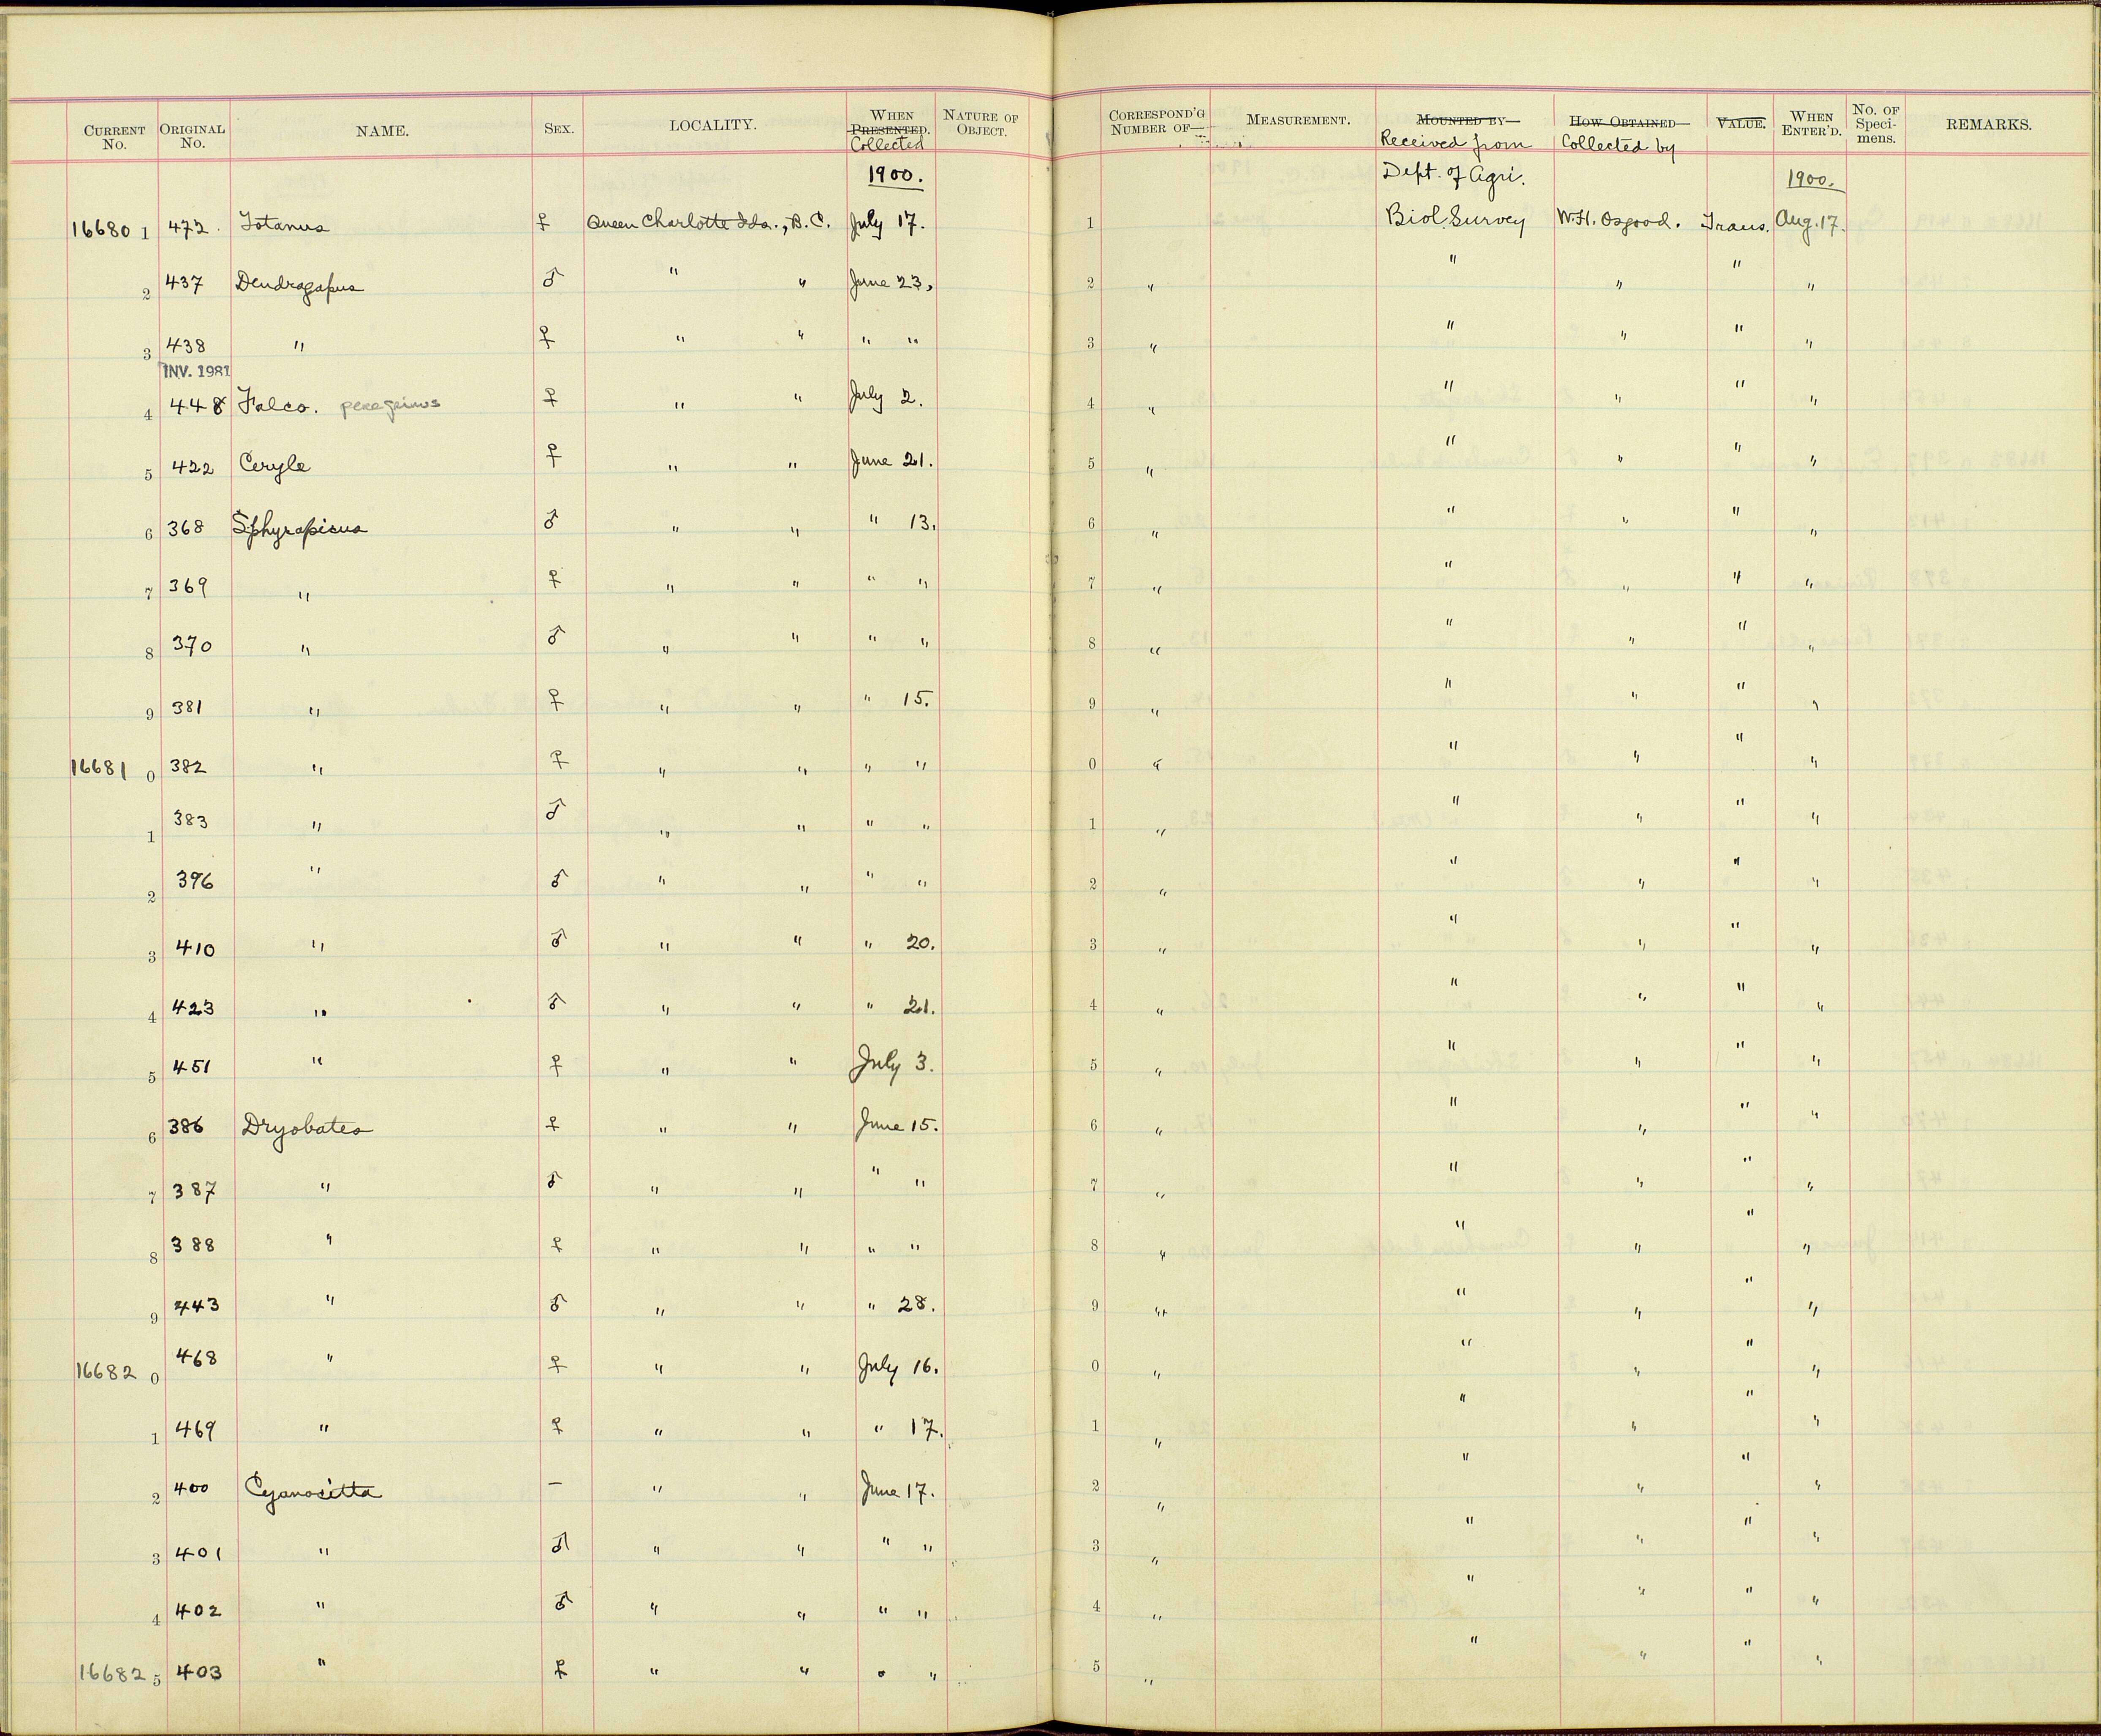 CURRENT No. ORIGINAL No. NAME. SEX. LOCALITY. WHEN PRESENTED. Collected NATURE OF OBJECT. CORRESPOND'G NUMBER OF— MEASUREMENT. MOUNTED BY— Received from HOW OBTAINED— Collected by VALUE. WHEN ENTER'D. No. OF Speci-mens. REMARKS.
1900. Dept. of Agri. 1900.
16680 1 472. Totanus ♀ Queen Charlotte Ids., B.C. July 17. 1 Biol. Survey W.H. Osgood. Trans. Aug. 17.
2 437 Dendragapus ♂ " " June 23, 2 " " " " "
3 438 " ♀ " " " " 3 " " " " "
INV. 1981
4 448 Falco. peregrinus ♀ " " July 2. 4 " " " " "
5 422 Ceryle ♀ " " June 21. 5 " " " " "
6 368 Sphyrapicus ♂ " " " 13, 6 " " " " "
7 369 " ♀ " " " " 7 " " " " "
8 370 " ♂ " " " " 8 " " " " "
9 381 " ♀ " " " 15. 9 " " " " "
16681 0 382 " ♀ " " " " 0 " " " " "
1 383 " ♂ " " " " 1 " " " " "
2 396 " ♂ " " " " 2 " " " " "
3 410 " ♂ " " " 20. 3 " " " " "
4 423 " ♂ " " " 21. 4 " " " " "
5 451 " ♀ " " July 3. 5 " " " " "
6 386 Dryobates ♀ " " June 15. 6 " " " " "
7 387 " ♂ " " " " 7 " " " " "
8 388 " ♀ " " " " 8 " " " " "
9 443 " ♂ " " " 28. 9 " " " " "
16682 0 468 " ♀ " " July 16. 0 " " " " "
1 469 " ♀ " " " 17. 1 " " " " "
2 400 Cyanocitta — " " June 17. 2 " " " " "
3 401 " ♂ " " " " 3 " " " " "
4 402 " ♂ " " " " 4 " " " " "
16682 5 403 " ♀ " " " " 5 " " " " "